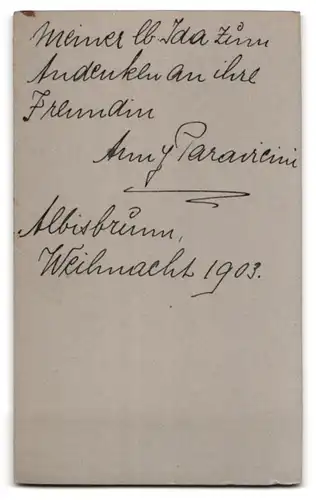 Meiner lb. Ida zum
Andenken an ihre
Freundin
Anny Paravicini
Albisbrunn,
Weihnacht 1903.